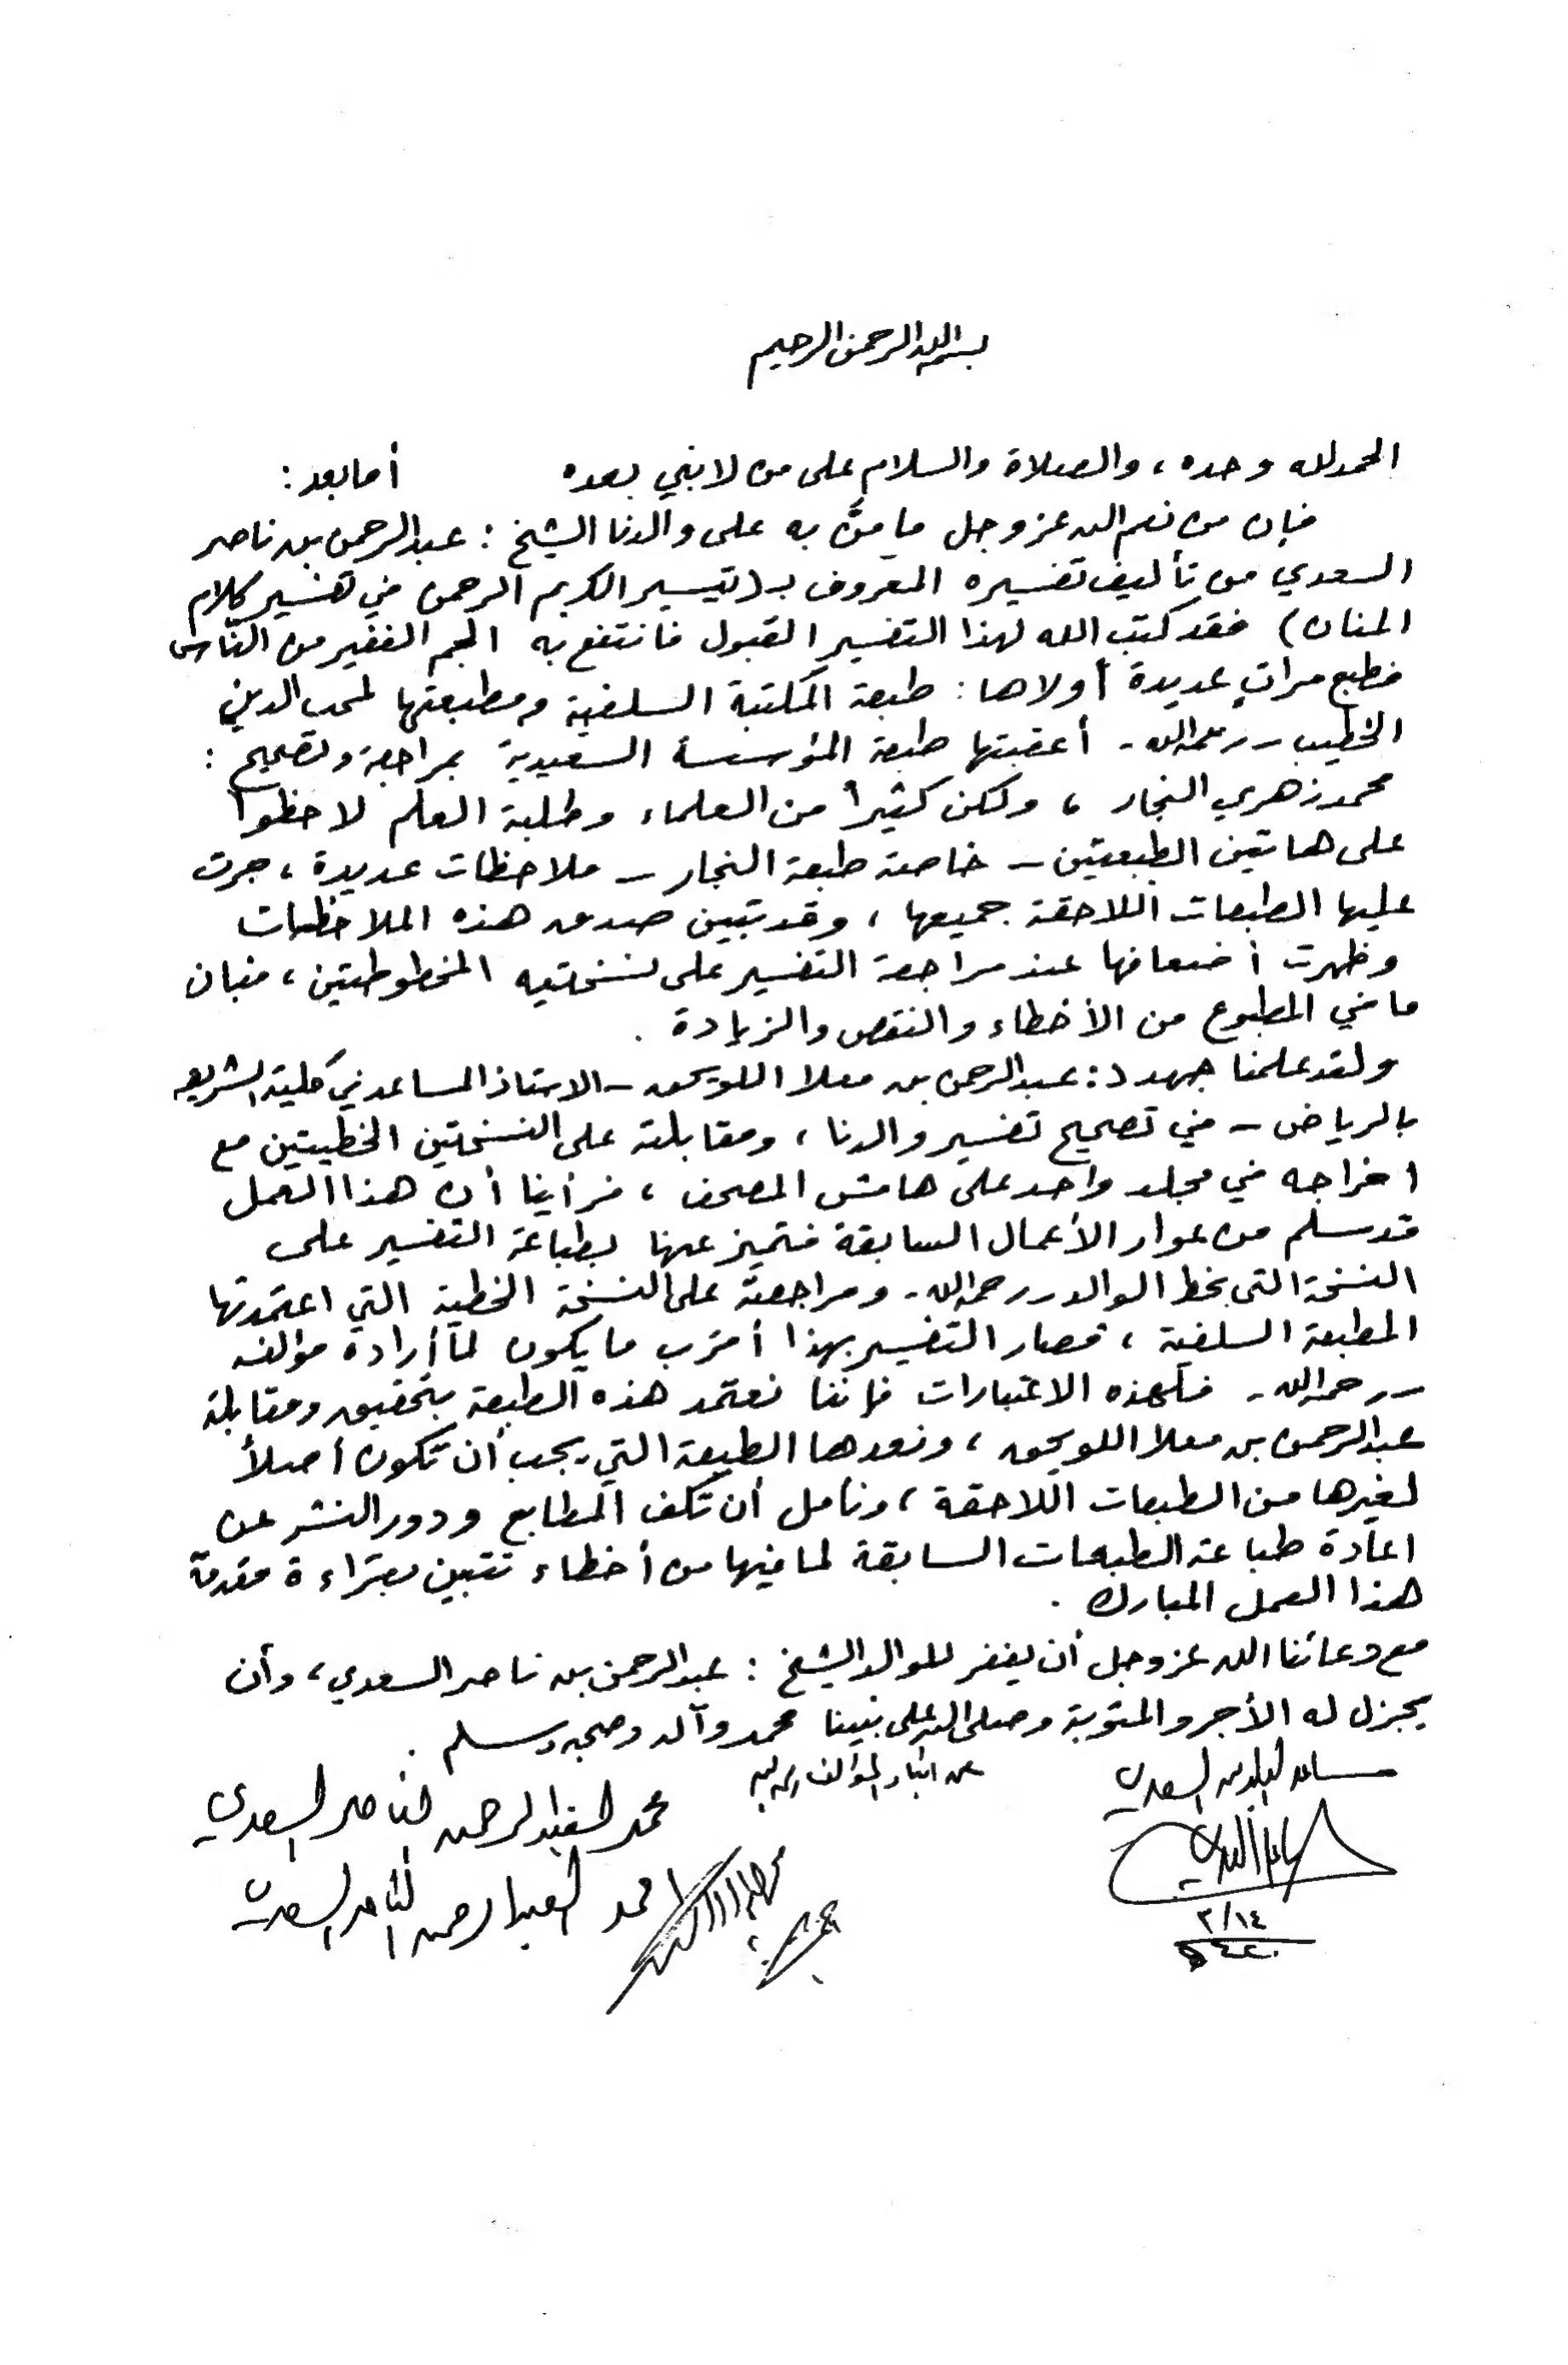 بسم الله الرحمن الرحيم
الحمد لله وحده، والصلاة والسلام على من لا نبي بعده أما بعد:
فإن من نعم الله عز وجل ما منَّ به على والدنا الشيخ: عبدالرحمن بن ناصر
السعدي من تأليف تفسيره المعروف بـ (تيسير الكريم الرحمن في تفسير كلام
المنان) فقد كتب الله لهذا التفسير القبول فانتفع به الجم الغفير من الناس
فطبع مراتٍ عديدة أولاها: طبعة المكتبة السلفية ومطبعتها لمحب الدين
الخطيب - رحمه الله - أعقبتها طبعة المؤسسة السعيدية بمراجعة وتصحيح:
محمد زهري النجار، ولكن كثيراً من العلماء وطلبة العلم لاحظوا
على هاتين الطبعتين - خاصة طبعة النجار - ملاحظات عديدة، جرت
عليها الطبعات اللاحقة جميعها، وقد تبين صدق هذه الملاحظات
وظهرت أضعافها عند مراجعة التفسير على نسختيه المخطوطتين، فبان
ما في المطبوع من الأخطاء والنقص والزيادة.
ولقد علمنا جهد د: عبدالرحمن بن معلا اللويحق - الاستاذ المساعد في كلية الشريعة
بالرياض - في تصحيح تفسير والدنا، ومقابلته على النسختين الخطيتين مع
اخراجه في مجلد واحد على هامش المصحف، فرأينا أن هذا العمل
قد سلم من عوار الأعمال السابقة فتميز عنها بطباعة التفسير على
النسخة التي بخط الوالد - رحمه الله - ومراجعته على النسخة الخطية التي اعتمدتها
المطبعة السلفية، فصار التفسير بهذا أقرب ما يكون لما أراده مؤلفه
- رحمه الله - فلهذه الاعتبارات فإننا نعتمد هذه الطبعة بتحقيق ومقابلة
عبدالرحمن بن معلا اللويحق، ونعدها الطبعة التي يجب أن تكون أصلاً
لغيرها من الطبعات اللاحقة، ونأمل أن تكف المطابع ودور النشر عن
اعادة طباعة الطبعات السابقة لما فيها من أخطاء تتبين بقراءة مقدمة
هذا العمل المبارك.
مع دعائنا الله عز وجل أن يغفر للوالد الشيخ: عبدالرحمن بن ناصر السعدي، وأن
يجزل له الأجر والمثوبة وصلى الله على نبينا محمد وآله وصحبه وسلم.
عن أبناء المؤلف
محمد العبدالرحمن الناصر السعدي
احمد العبدالرحمن الناصر السعدي
مساعد العبدالرحمن السعدي
١٤/٣
٤٢٠هـ